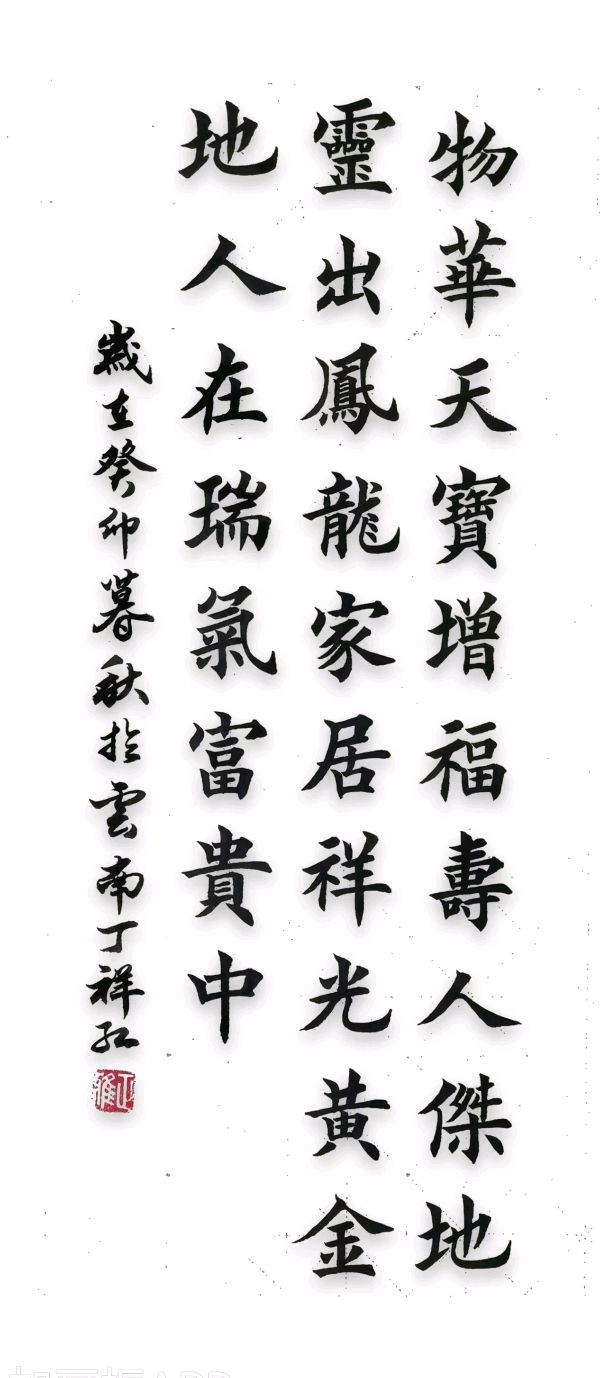 物華天寶增福壽人傑地
靈出鳳龍家居祥光黃金
地人在瑞氣富貴中
歲在癸卯暮秋於雲南丁祥紅